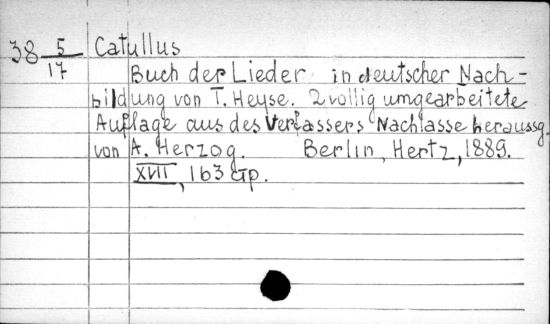 38 5/17 Catullus
Buch der Lieder in deutscher Nach-
bildung von T. Heyse. 2 vollig umgearbeitete
Auflage aus des Verfassers Nachlasse heraussg.
von A. Herzog. Berlin, Hertz, 1889.
XVII, 163 стр.